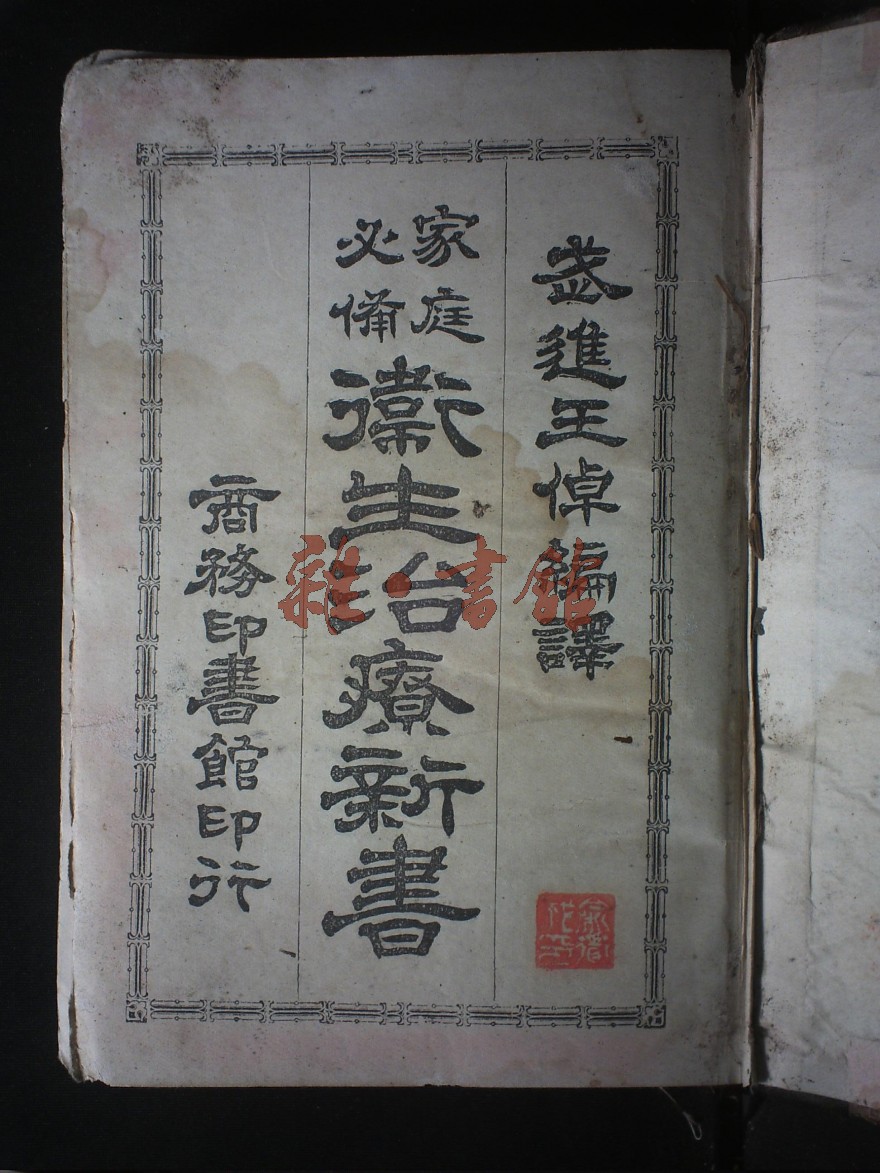 武進王倬編譯
家庭
必備
衛生治療新書
商務印書館印行
雜·書館